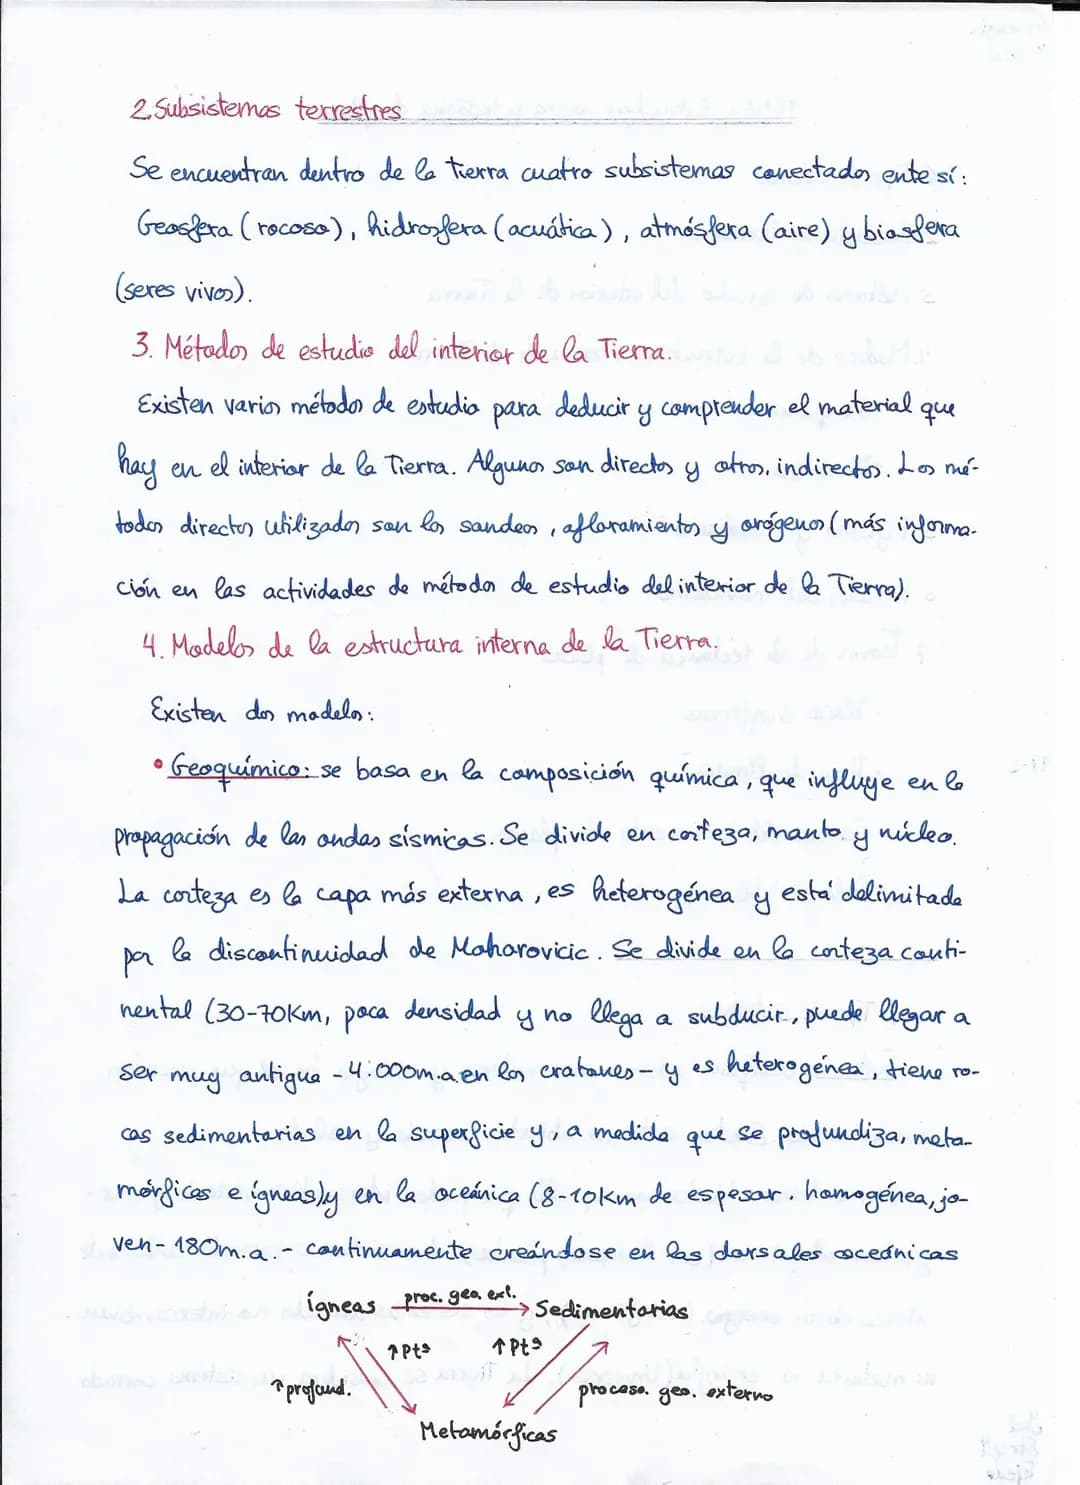 2. Subsistemas terrestres
Se encuentran dentro de la tierra cuatro subsistemas conectados ente sí:
Geosfera (rocosa), hidrosfera (acuática), atmósfera (aire) y biosfera
(seres vivos).
3. Métodos de estudio del interior de la Tierra.
Existen varios métodos de estudio para deducir y comprender el material que
hay en el interior de la Tierra. Algunos son directos y otros, indirectos. Los mé-
todos directos utilizados son los sondeos, afloramientos y orógenos (más informa-
ción en las actividades de métodos de estudio del interior de la Tierra).
4. Modelos de la estructura interna de la Tierra.
Existen dos modelos:
• Geoquímico: se basa en la composición química, que influye en la
propagación de las ondas sísmicas. Se divide en corteza, manto y núcleo.
La corteza es la capa más externa, es heterogénea y está delimitada
por la discontinuidad de Mohorovicic. Se divide en la corteza conti-
nental (30-70Km, poca densidad y no llega a subducir, puede llegar a
ser muy antigua - 4.000m.a. en los cratones - y es heterogénea, tiene ro-
cas sedimentarias en la superficie y, a medida que se profundiza, meta-
mórficas e ígneas) y en la oceánica (8-10Km de espesor. homogénea, jo-
ven - 180m.a. - continuamente creándose en las dorsales oceánicas
ígneas proc. geo. ext. Sedimentarias
↑Ptª ↑Ptª
↑ profund. proceso. geo. externo
Metamórficas